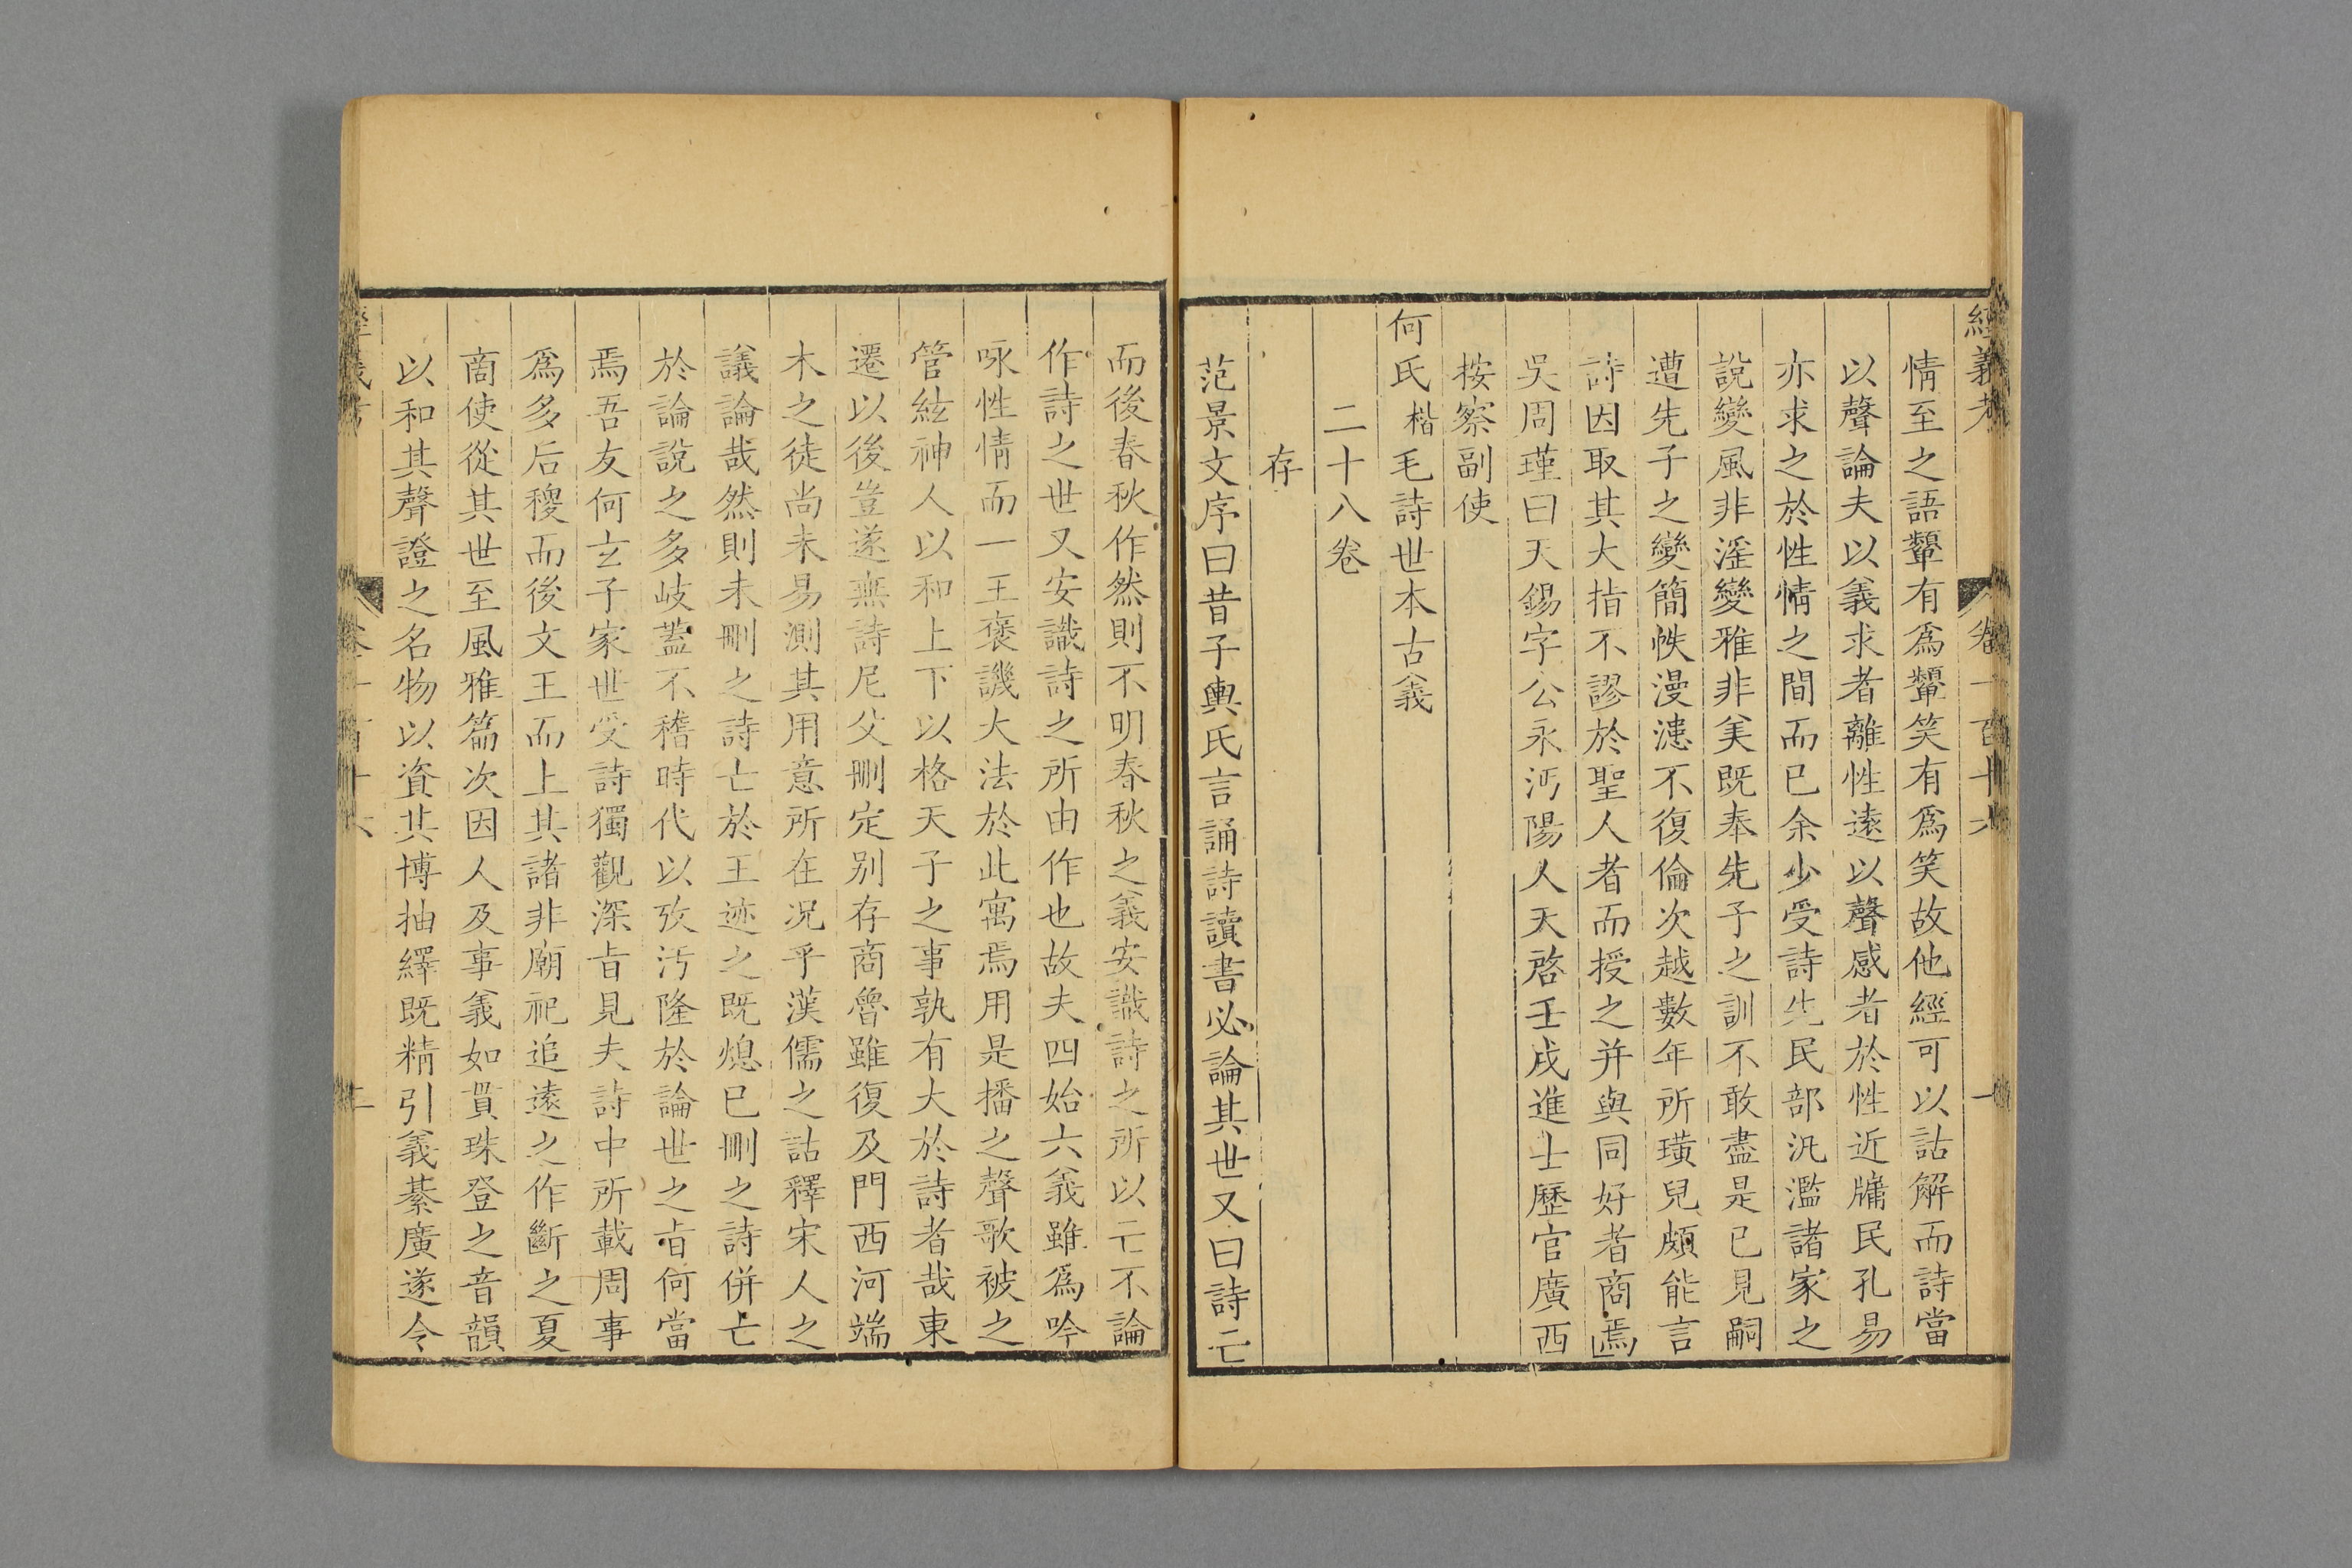 經義考 卷一百十六 一
情至之語顰有爲顰笑有爲笑故他經可以詁解而詩當
以聲論夫以義求者離性遠以聲感者於性近牗民孔易
亦求之於性情之間而已余少受詩先民部汎濫諸家之
說變風非淫變雅非美既奉先子之訓不敢盡是已見嗣
遭先子之變簡帙漫漶不復倫次越數年所璜兒頗能言
詩因取其大指不謬於聖人者而授之并與同好者商焉
吳周瑾曰天錫字公永沔陽人天啓壬戌進士歷官廣西
按察副使
何氏楷毛詩世本古義
二十八卷
存
范景文序曰昔子輿氏言誦詩讀書必論其世又曰詩亡
而後春秋作然則不明春秋之義安識詩之所以亡不論
作詩之世又安識詩之所由作也故夫四始六義雖爲吟
咏性情而一王褒譏大法於此寓焉用是播之聲歌被之
管絃神人以和上下以格天子之事孰有大於詩者哉東
遷以後豈遂無詩尼父刪定别存商魯雖復及門西河端
木之徒尚未易測其用意所在况乎漢儒之詁釋宋人之
議論哉然則未刪之詩亡於王迹之既熄已刪之詩併亡
於論說之多岐蓋不稽時代以攷汚隆於論世之㫖何當
焉吾友何玄子家世受詩獨觀深㫖見夫詩中所載周事
爲多后稷而後文王而上其諸非廟祀追遠之作斷之夏
商使從其世至風雅篇次因人及事義如貫珠登之音韻
以和其聲證之名物以資其博抽繹既精引義綦廣遂令